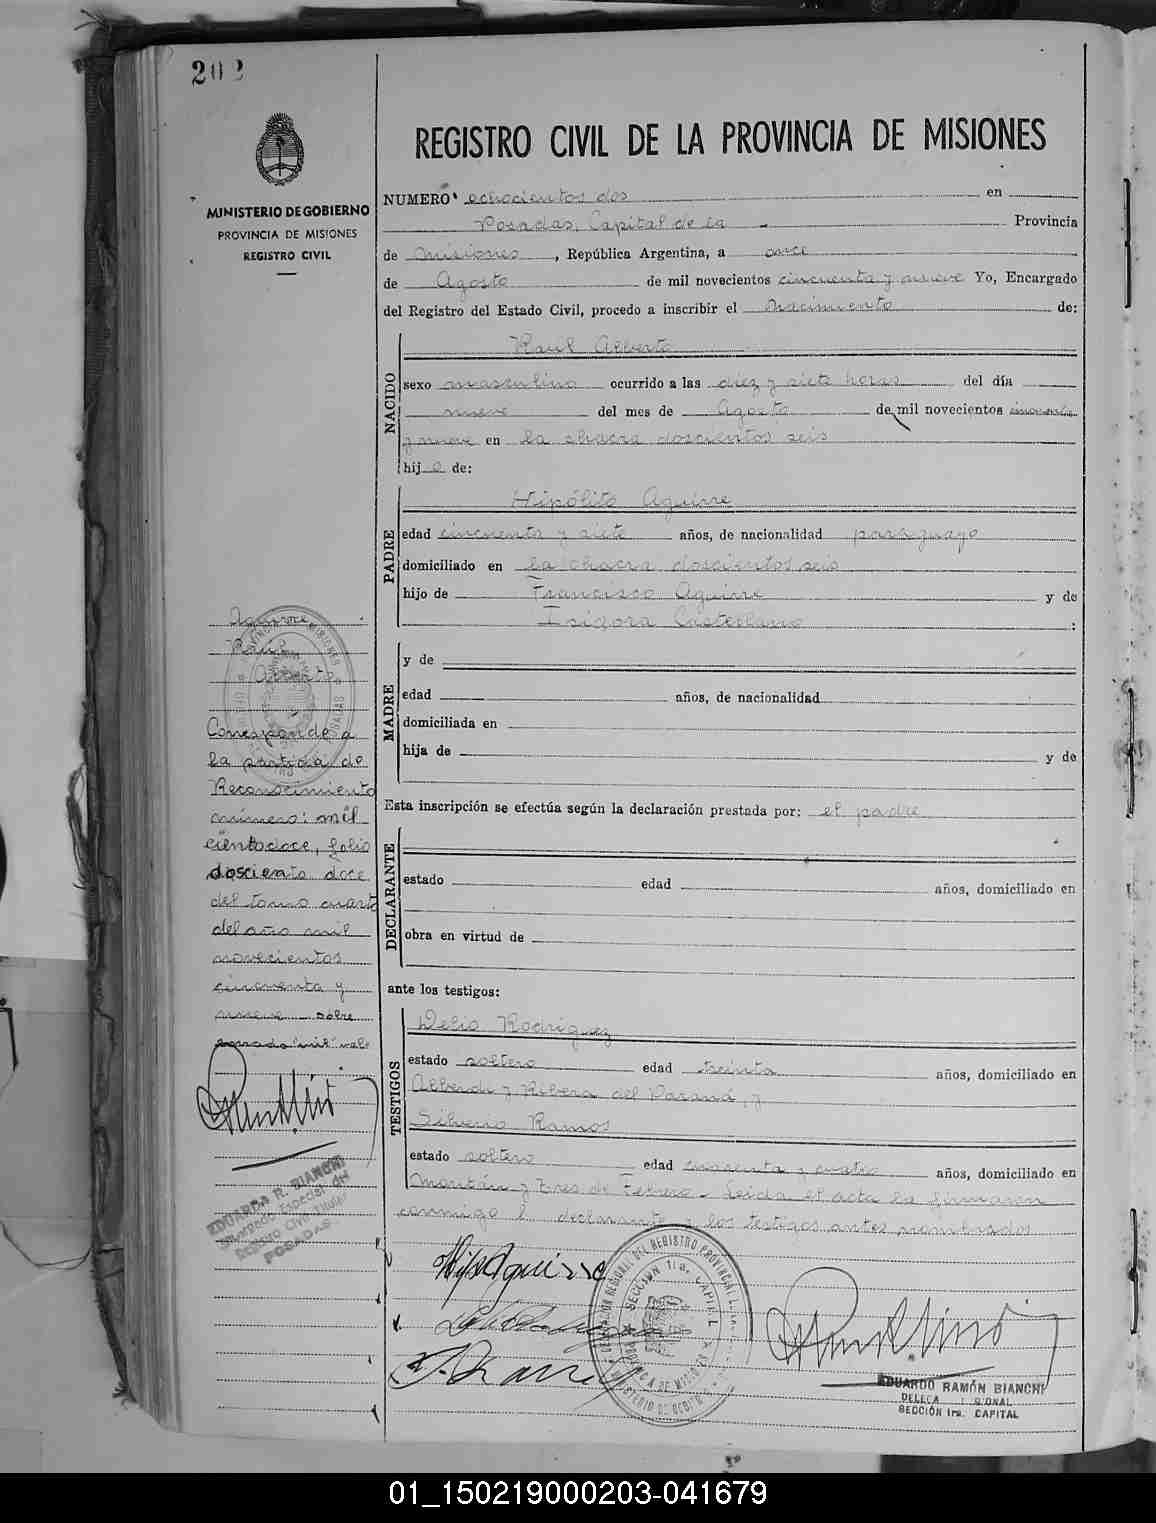 202
MINISTERIO DE GOBIERNO
PROVINCIA DE MISIONES
REGISTRO CIVIL
REGISTRO CIVIL DE LA PROVINCIA DE MISIONES
NUMERO ochocientos dos en
Posadas, Capital de la Provincia
de Misiones, República Argentina, a once
de Agosto de mil novecientos cincuenta y nueve Yo, Encargado
del Registro del Estado Civil, procedo a inscribir el Nacimiento de:
NACIDO
Raúl Alberto
sexo masculino ocurrido a las diez y siete horas del día
nueve del mes de Agosto de mil novecientos cincuenta
y nueve en la chacra doscientos seis
hijo de:
PADRE
Hipólito Aguirre
edad cincuenta y siete años, de nacionalidad paraguayo
domiciliado en la chacra doscientos seis
hijo de Francisco Aguirre y de
Isidora :
MADRE
y de
edad años, de nacionalidad
domiciliada en
hija de y de
Esta inscripción se efectúa según la declaración prestada por: el padre
DECLARANTE
estado edad años, domiciliado en
obra en virtud de
ante los testigos:
TESTIGOS
Delio Rodriguez
estado soltero edad treinta años, domiciliado en
Alberdi y Ribera del Paraná, y
Silverio Ramos
estado soltero edad cuarenta y cuatro años, domiciliado en
y Tres de Febrero - Leida el acta la firmaron
conmigo el declarante y los testigos antes nombrados
Aguirre
Raúl
Alberto
Corresponde a
la partida de
Reconocimiento
número: mil
ciento doce, folio
doscientos doce
del tomo cuarto
del año mil
novecientos
cincuenta y
nueve sobre
borrado "mil" vale
EDUARDO R. BIANCHI
Registro Civil
POSADAS
Hip Aguirre
SECCIÓN 1ra. CAPITAL
EDUARDO RAMÓN BIANCHI
SECCIÓN 1ra. CAPITAL
01_150219000203-041679